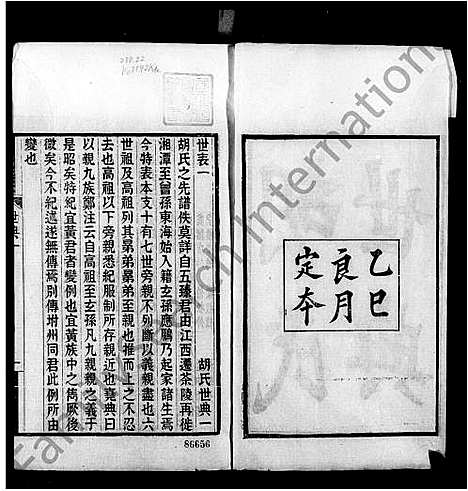 乙巳
良月
定本
世表一
胡氏世典一
胡氏之先譜佚莫詳自五臻君由江西遷茶陵再徙
湘潭至曾孫東海始入籍玄孫應鵬乃起家諸生焉
今特表本支十有七世旁親不列斷以義親盡也六
世祖及高祖列其昴弟弟至親也推而上之不忍
去也高祖以下旁親悉紀服制所存親近也堯典曰
以親九族鄭注云自高祖至玄孫凡九親親之義于
是昭矣特紀宜黃君者變例也宜黃族中之雋厥後
微矣今不紀述遂無傳焉別傳坿州同君此例所由
變也
世典一
86656